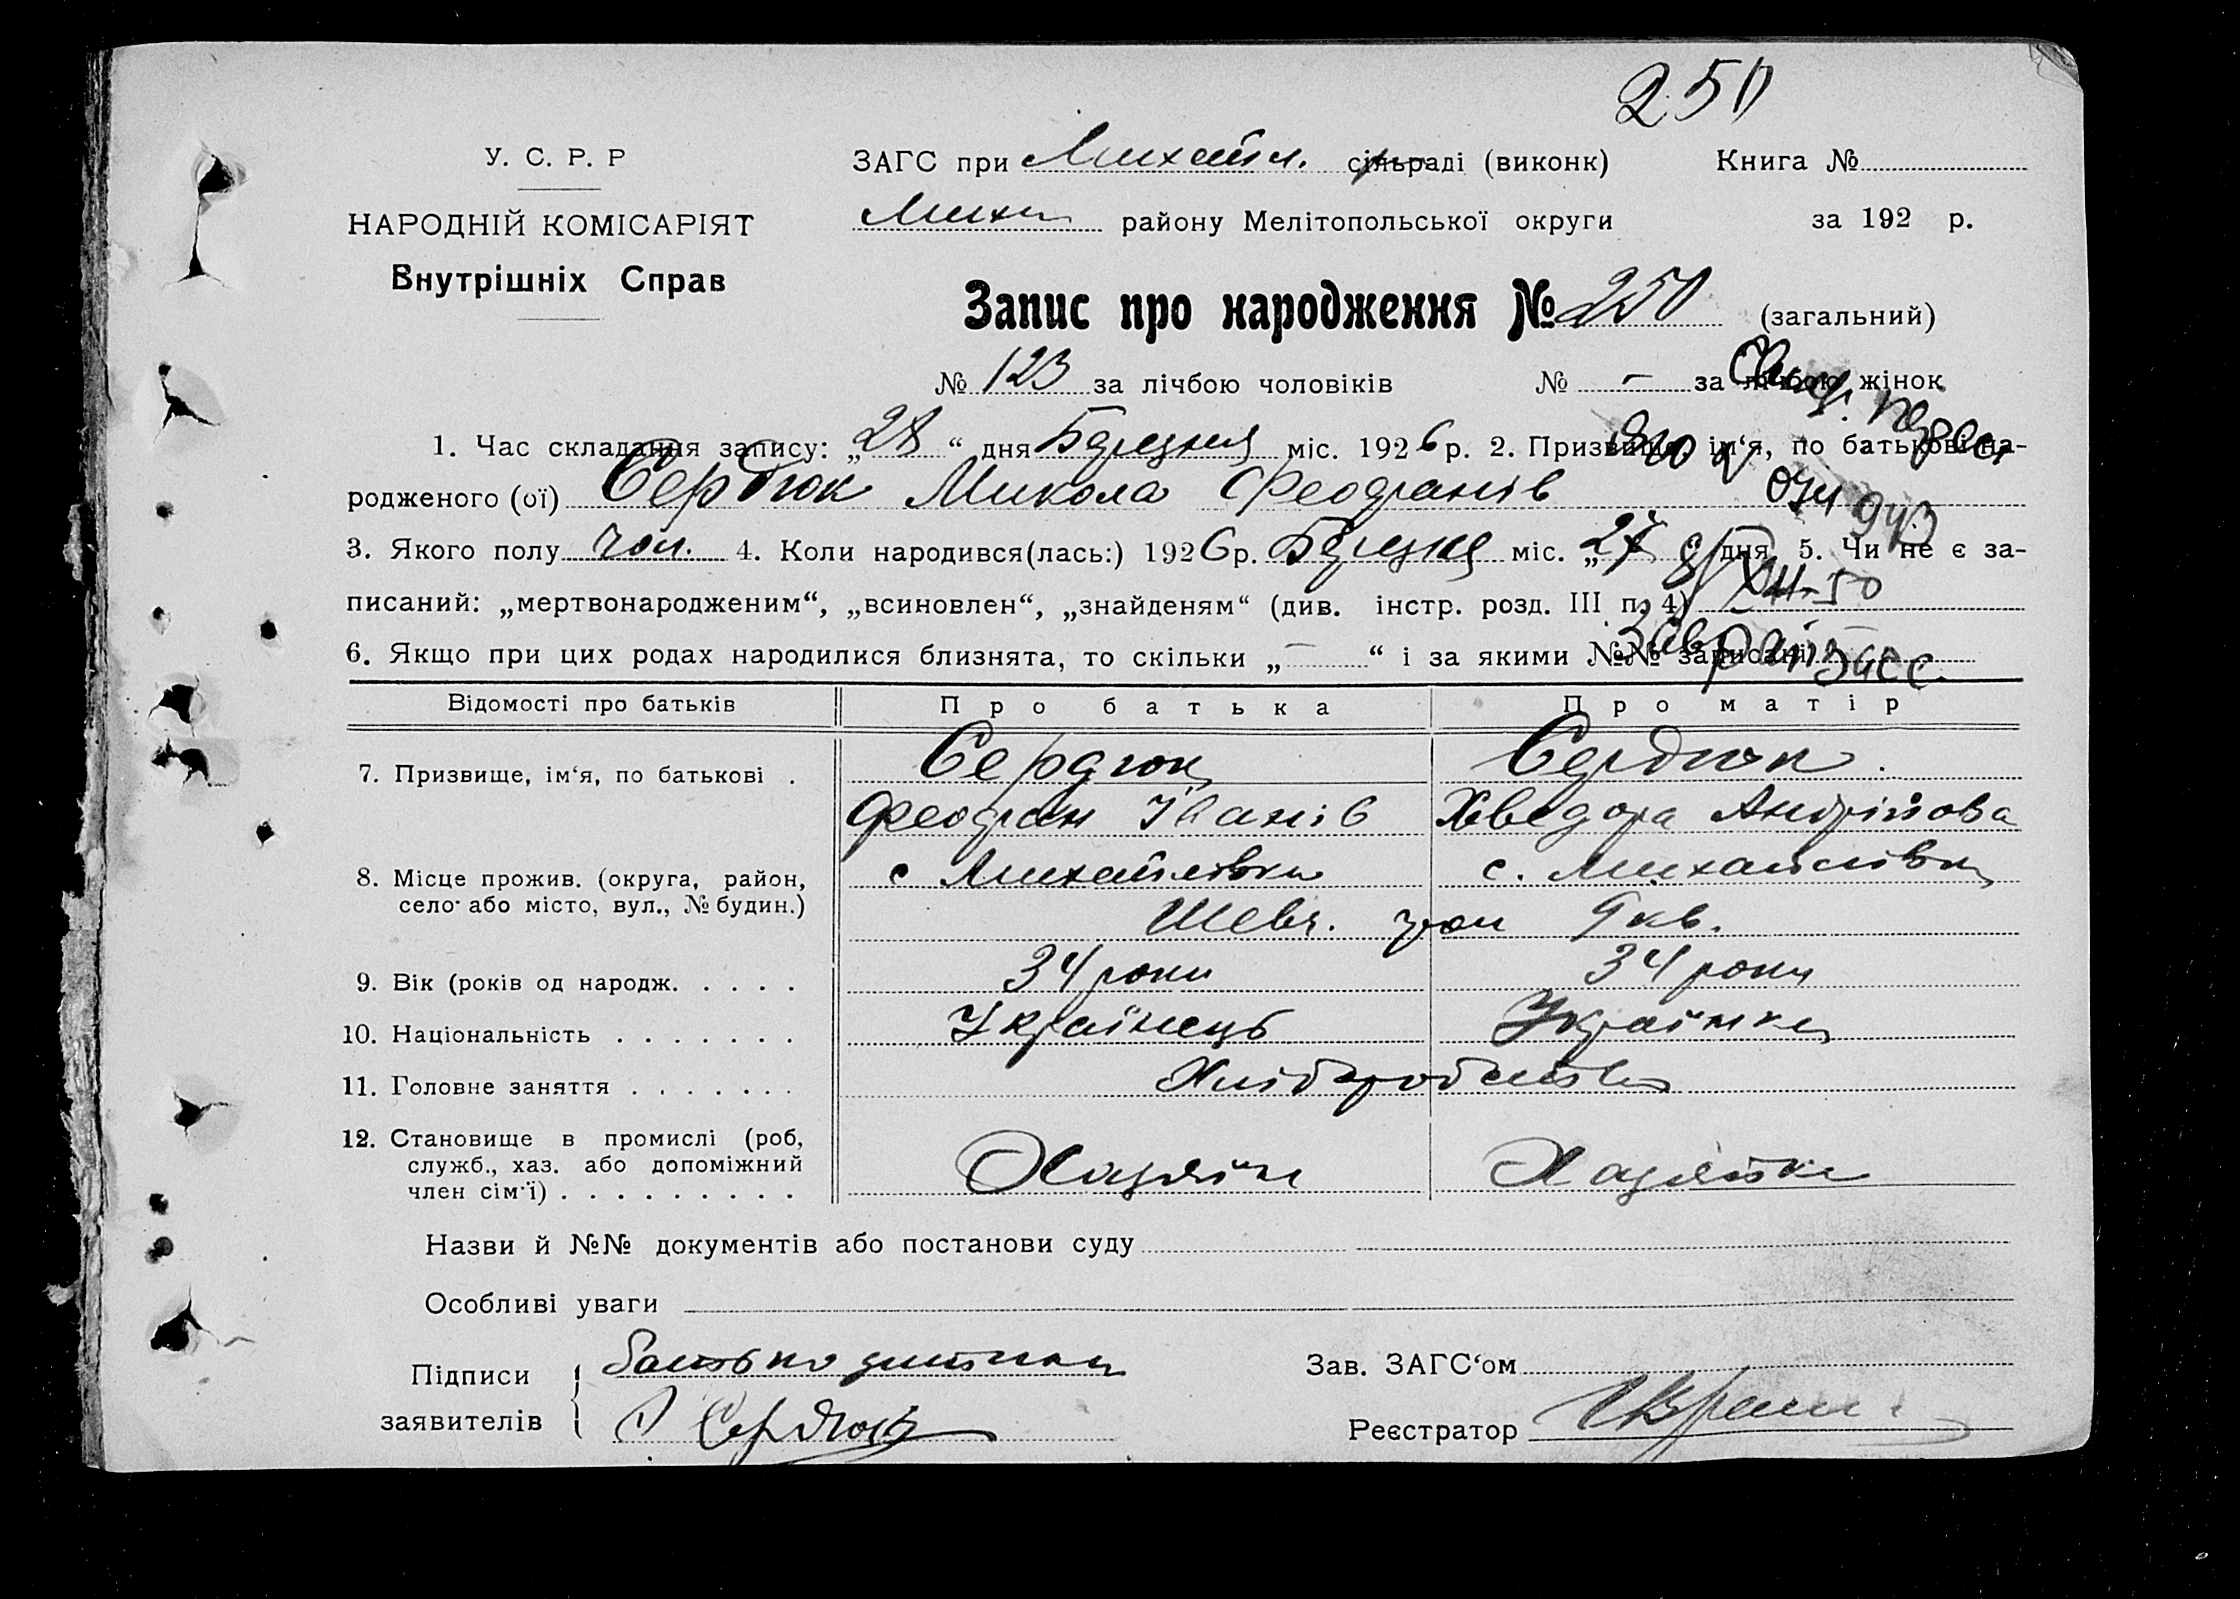 250
У. С. Р. Р
ЗАГС при Михайл. сільраді (виконк) Книга №
НАРОДНІЙ КОМІСАРІЯТ
Мих району Мелітопольської округи за 192 р.
Внутрішніх Справ
Запис про народження № 250 (загальний)
№ 123 за лічбою чоловіків № – за лічбою жінок
1. Час складання запису: „28“ дня Березня міс. 1926 р. 2. Призвище, ім‘я, по батькові на-
родженого (ої) Сердюк Микола Феофанів
3. Якого полу чол. 4. Коли народився(лась:) 1926 р. Березня міс. „27 дня 5. Чи не є за-
писаний: „мертвонародженим“, „всиновлен“, „знайденям“ (див. інстр. розд. III п. 4)
6. Якщо при цих родах народилися близнята, то скільки „–“ і за якими №№ записані
Відомості про батьків Про батька Про матір
7. Призвище, ім‘я, по батькові . Сердюк Сердюк
Феофан Іванів Хведора Андрійова
8. Місце прожив. (округа, район, с Михайлівка с. Михайлівка
село або місто, вул., № будин.)
Шевч. 9 кв.
9. Вік (років од народж. . . . . 34 роки 34 роки
10. Національність . . . . . . . Українець Українка
11. Головне заняття . . . . . . . Хліборобство
12. Становище в промислі (роб,
служб., хаз. або допоміжний
член сім‘ї) . . . . . . . . . Хазяїн Хазяйка
Назви й №№ документів або постанови суду
Особливі уваги
Підписи батько дитини Зав. ЗАГС‘ом
заявителів Сердюк Реєстратор